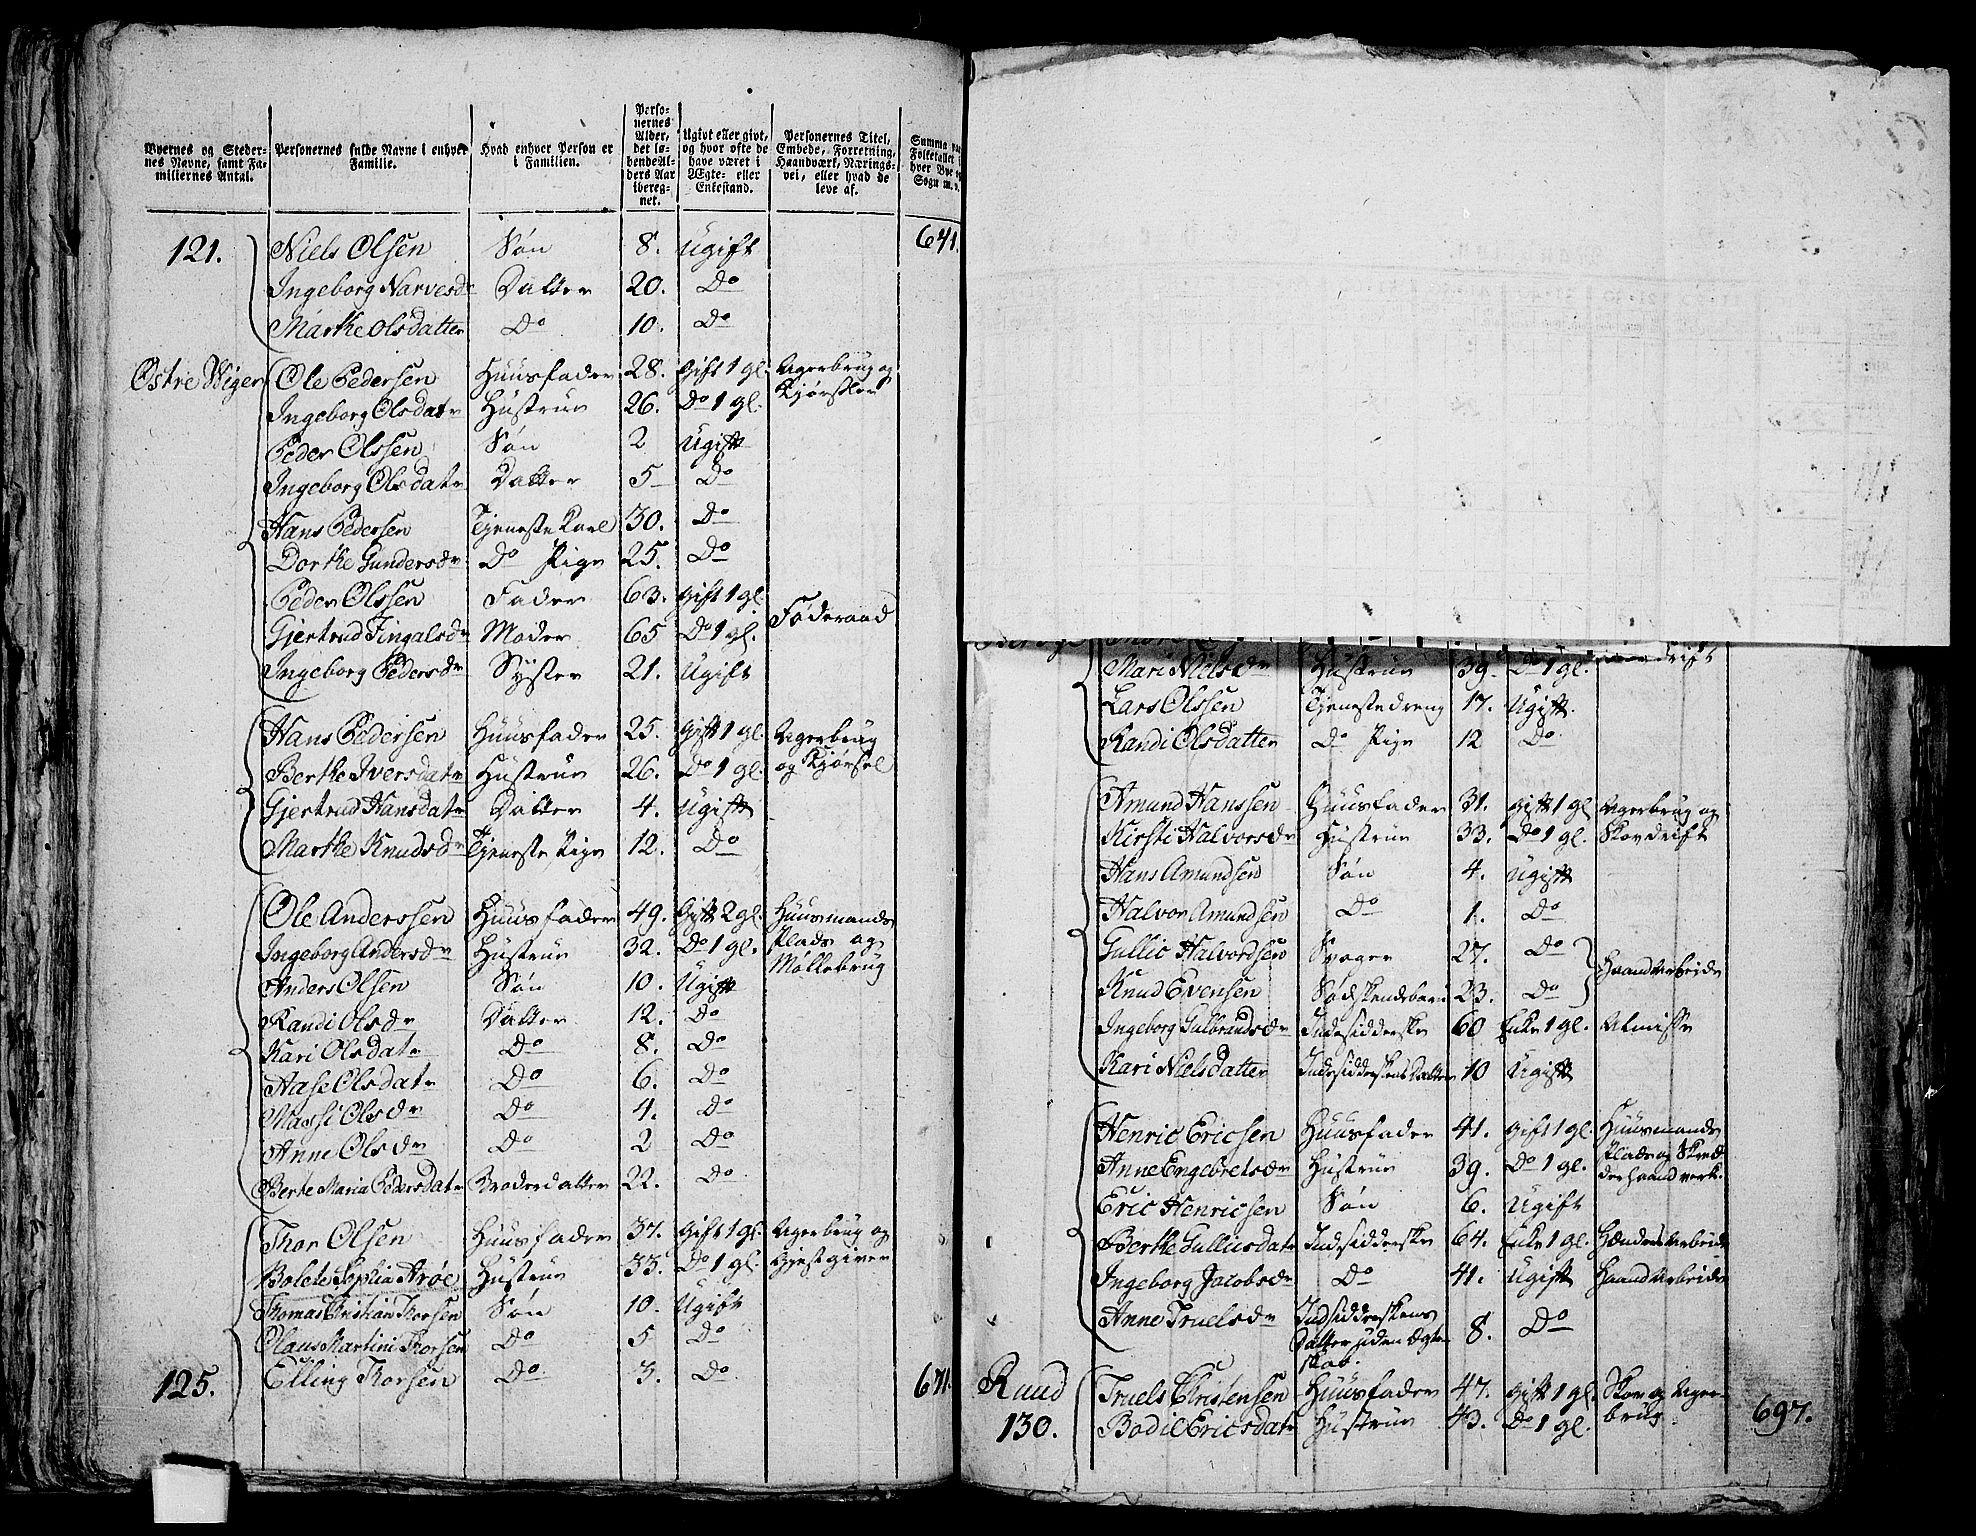 Byernes og Steder-
nes Navne, samt Fa-
miliernes Antal.
Personernes fulde Navne i enhver
Familie.
Hvad enhver Person er
i Familien.
Perso-
nernes
Alder,
det lø-
bende Al-
ders Aar
ibereg-
net.
Ugivt eller givt,
og hvor ofte de
have været i
Ægte- eller
Enkestand.
Personernes Titel,
Embede, Forretning,
Haandværk, Nærings-
vei, eller hvad de
leve af.
Summa
Folketallet i
hver Bye
Sogn m. v.
121. Niels Olsen Søn 8. Ugift 641.
Ingeborg Narvesdr Datter 20. Do
Marthe Olsdatter Do 10. Do
Østre Wiger Ole Pedersen Huusfader 28. Gift 1 gl. Agerbrug og
Ingeborg Olsdatr Hustrue 26. Do 1 gl. Kjørsler
Peder Olssen Søn 2 Ugift
Ingeborg Olsdatr Datter 5 Do
Hans Pedersen Tjeneste Karl 30. Do
Dorthe Gundersdr Do Pige 25. Do
Peder Olssen Fader 63. Gift 1 gl.
Gjertrud Fingalsdr Moder 65 Do 1 gl. Føderaad
Ingeborg Pedersdr Syster 21. Ugift
Hans Pedersen Huusfader 25. Gift 1 gl. Agerbrug
Berthe Iversdatr Hustrue 26. Do 1 gl. og Kjørsel
Gjertrud Hansdatr Datter 4. Ugift
Marthe Knudsdr Tjeneste Pige 12. Do
Ole Anderssen Huusfader 49. Gift 2 gl. Huusmands
Ingeborg Andersdr Hustrue 32. Do 1 gl. Plads og
Møllebrug
Anders Olsen Søn 10. Ugift
Randi Olsdr Datter 12. Do
Kari Olsdatr Do 8. Do
Aase Olsdatr Do 6. Do
Massi Olsdr Do 4. Do
Anne Olsdr Do 2 Do
Berte Maria Pedersdatr Broderdatter 22. Do
Thor Olsen Huusfader 37. Gift 1 gl. Agerbrug og
Bolete Sophia Arøe Hustrue 33. Do 1 gl. Gjestgiver
Thomas Christian Thorsen Søn 10. Ugift
Olaus Martini Thorsen Do 5 Do
125. Elling Thorsen Do 3. Do 671.
Mari Nielsdr Hustrue 39. Do 1 gl.
Lars Olssen Tjenestedreng 17. Ugift
Randi Olsdatter Do Pige 12 Do
Amund Hanssen Huusfader 31. Gift 1 gl Agerbrug og
Kirsti Halvorsdr Hustrue 33. Do 1 gl. Skovdrift
Hans Amundsen Søn 4. Ugift
Halvor Amundsen Do 1. Do
Gullic Halvordsen Svoger 27. Do
Haandarbeide
Knud Evensen Sødskendebarn 23. Do
Ingeborg Gulbrandsdr Indesidderske 60 Enke 1 gl. Almisse
Kari Nielsdatter Indesidderskens Datter 10 Ugift
Henric Ericsen Huusfader 41. Gift 1 gl. Huusmands
Anne Engebretsdr Hustrue 39. Do 1 gl. Plads og Skræd
derhaandverk.
Eric Henricsen Søn 6. Ugift
Berthe Gullicsdatr Indsidderske 64. Enke 1 gl. Hænders Arbeide
Ingeborg Jacobsdr Do 41. Ugift Haandarbeide
Anne Truelsdr Indsidderskens 8. Do
Datter uden Ægte
skab.
Ruud Truels Christensen Huusfader 47. Gift 1 gl Skov og Ager-
130. Bodil Ericsdatr Hustrue 43. Do 1 gl. brug. 697.